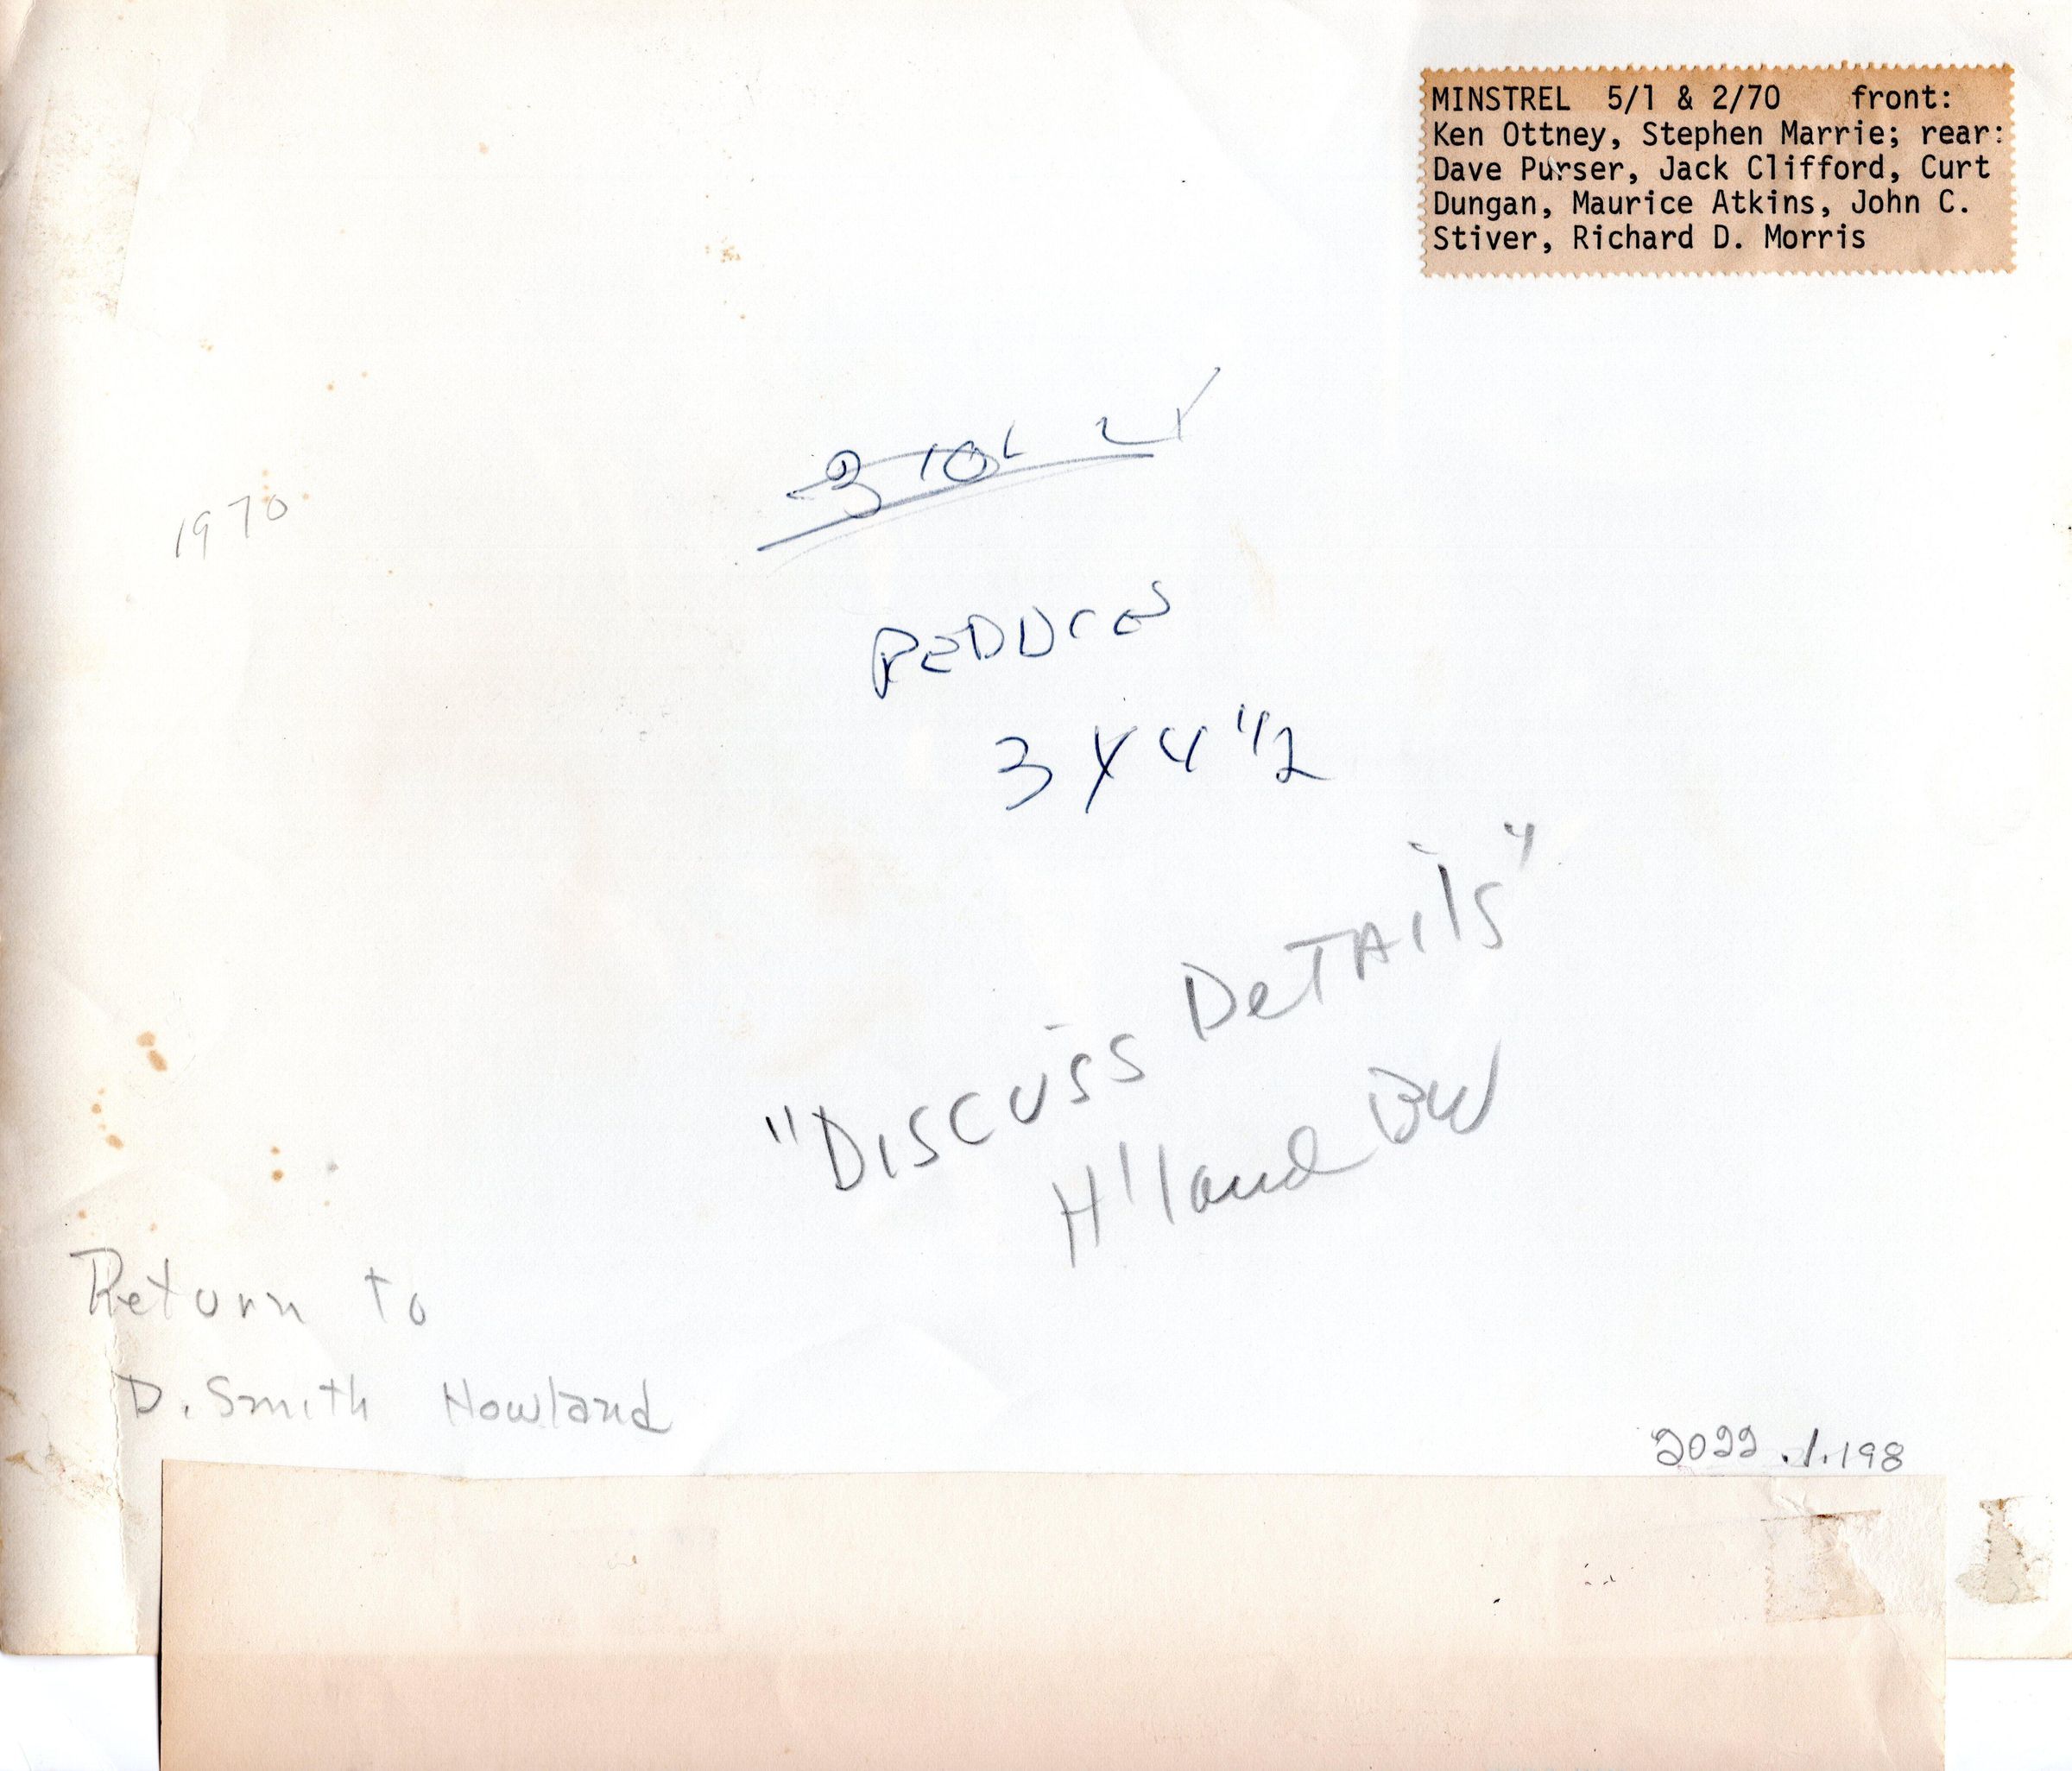 MINSTREL 5/1 & 2/70 front:
Ken Ottney, Stephen Marrie; rear:
Dave Purser, Jack Clifford, Curt
Dungan, Maurice Atkins, John C.
Stiver, Richard D. Morris
1970
REDUCE
3 X 4 1/2
"DISCUSS DETAILS"
H'land BW
Return to
D. Smith Howland
2022.1.198